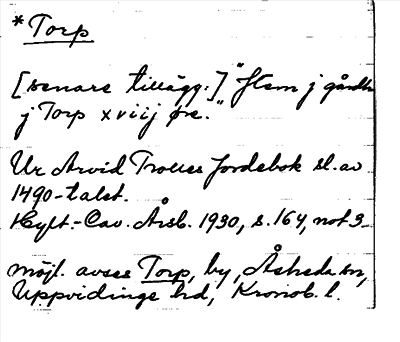 *Torp
[senare tillägg:] "Item j gårdh
j Torp xviij øre."
Ur Arvid Trolles Jordebok sl. av
1490-talet.
Hylt.-Cav. Årsb. 1930, s. 164, not 3.
möjl. avses Torp, by, Åsheda sn,
Uppvidinge hd, Kronob. l.